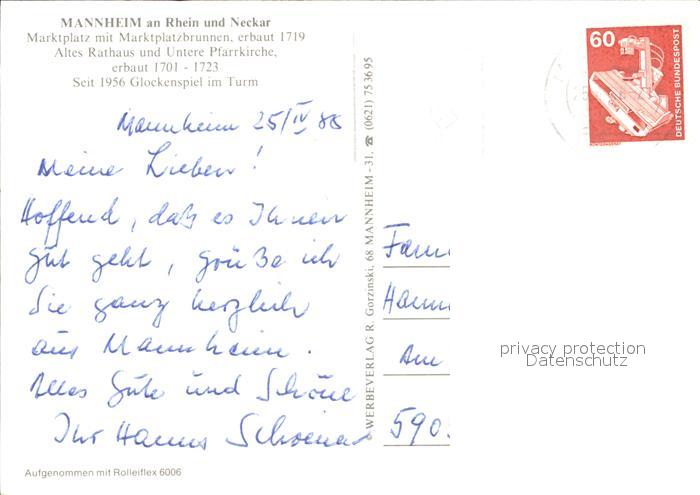 MANNHEIM an Rhein und Neckar
Marktplatz mit Marktplatzbrunnen, erbaut 1719
Altes Rathaus und Untere Pfarrkirche,
erbaut 1701 - 1723
Seit 1956 Glockenspiel im Turm
Mannheim 25/IV 88
Meine Lieben!
Hoffend, daß es Ihnen
gut geht, grüße ich
Sie ganz herzlich
aus Mannheim.
Alles Gute und Schöne
Ihr Hanns
Aufgenommen mit Rolleiflex 6006
© WERBEVERLAG R. Gorzinski, 68 MANNHEIM-31, ☎ (0621) 75 36 95
60
DEUTSCHE BUNDESPOST
Fam
Hann
Am
590
privacy protection
Datenschutz